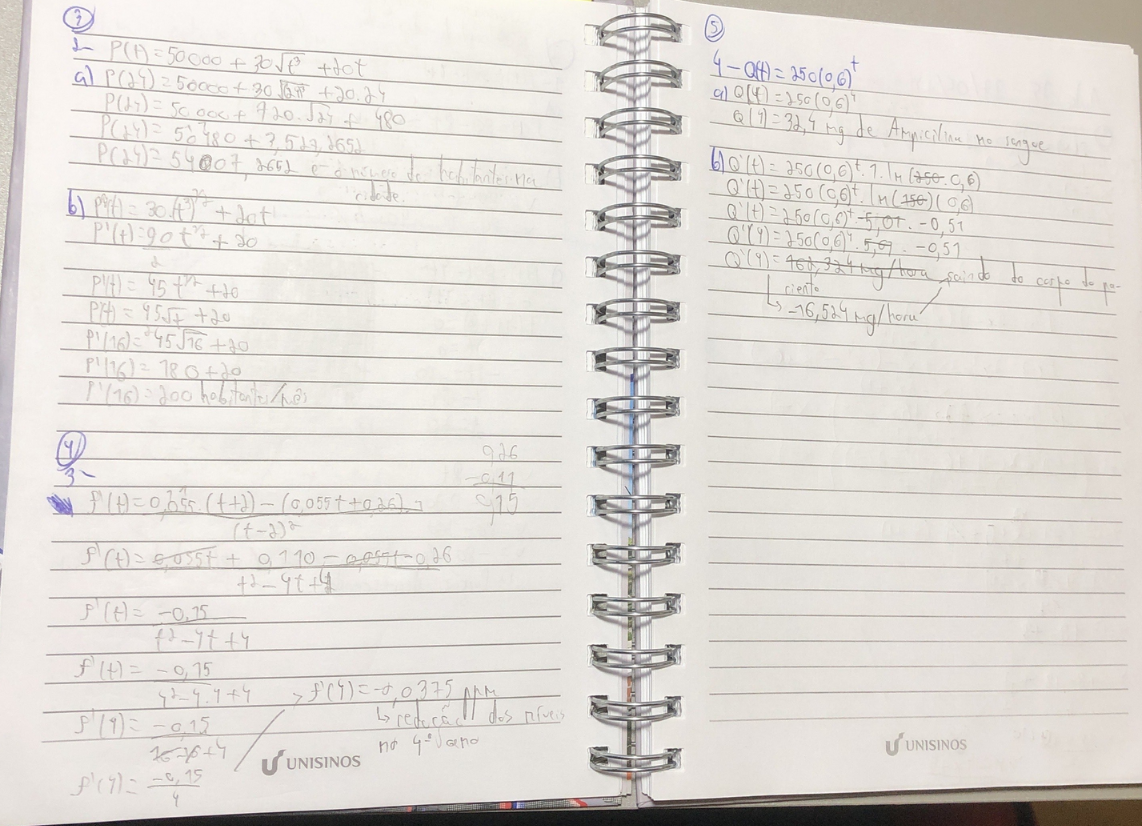 3
2- P(t) = 50000 + 30√t³ + 20t
a) P(24) = 50000 + 30√24³ + 20.24
P(24) = 50000 + 720.√24 + 480
P(24) = 50480 + 3,527,2652
P(24) = 54007,2652 é o número de habitantes na
cidade.
b) P'(t) = 30(t³)^1/2 + 20t
P'(t) = 90 t^1/2 + 20
2
P'(t) = 45 t^1/2 + 20
P'(t) = 45√t + 20
P'(16) = 45√16 + 20
P'(16) = 180 + 20
P'(16) = 200 habitantes/mês
4
3-
0,26
-0,11
0,15
f'(t) = 0,055.(t+2) - (0,055t + 0,26).1
(t-2)²
f'(t) = 0,055t + 0,110 - 0,055t - 0,26
t² - 4t + 4
f'(t) = -0,15
t² - 4t + 4
f'(t) = -0,15
4² - 4.4 + 4
f'(4) = -0,15
16 - 16 + 4
f'(4) = -0,15
4
f'(4) = -0,0375 ppm
↳ redução dos níveis
no 4º ano
UNISINOS
5
4 - Q(t) = 250(0,6)^t
a) Q(4) = 250(0,6)⁴
Q(4) = 32,4 mg de Ampicilina no sangue
b) Q'(t) = 250(0,6)^t . 1 . ln(250.0,6)
Q'(t) = 250(0,6)^t . ln(250)(0,6)
Q'(t) = 250(0,6)^t . 5,01 . -0,51
Q'(4) = 250(0,6)⁴ . 5,01 . -0,51
Q'(4) = 162,324 mg/hora saindo do corpo do pa-
ciente
↳ -16,524 mg/hora
UNISINOS